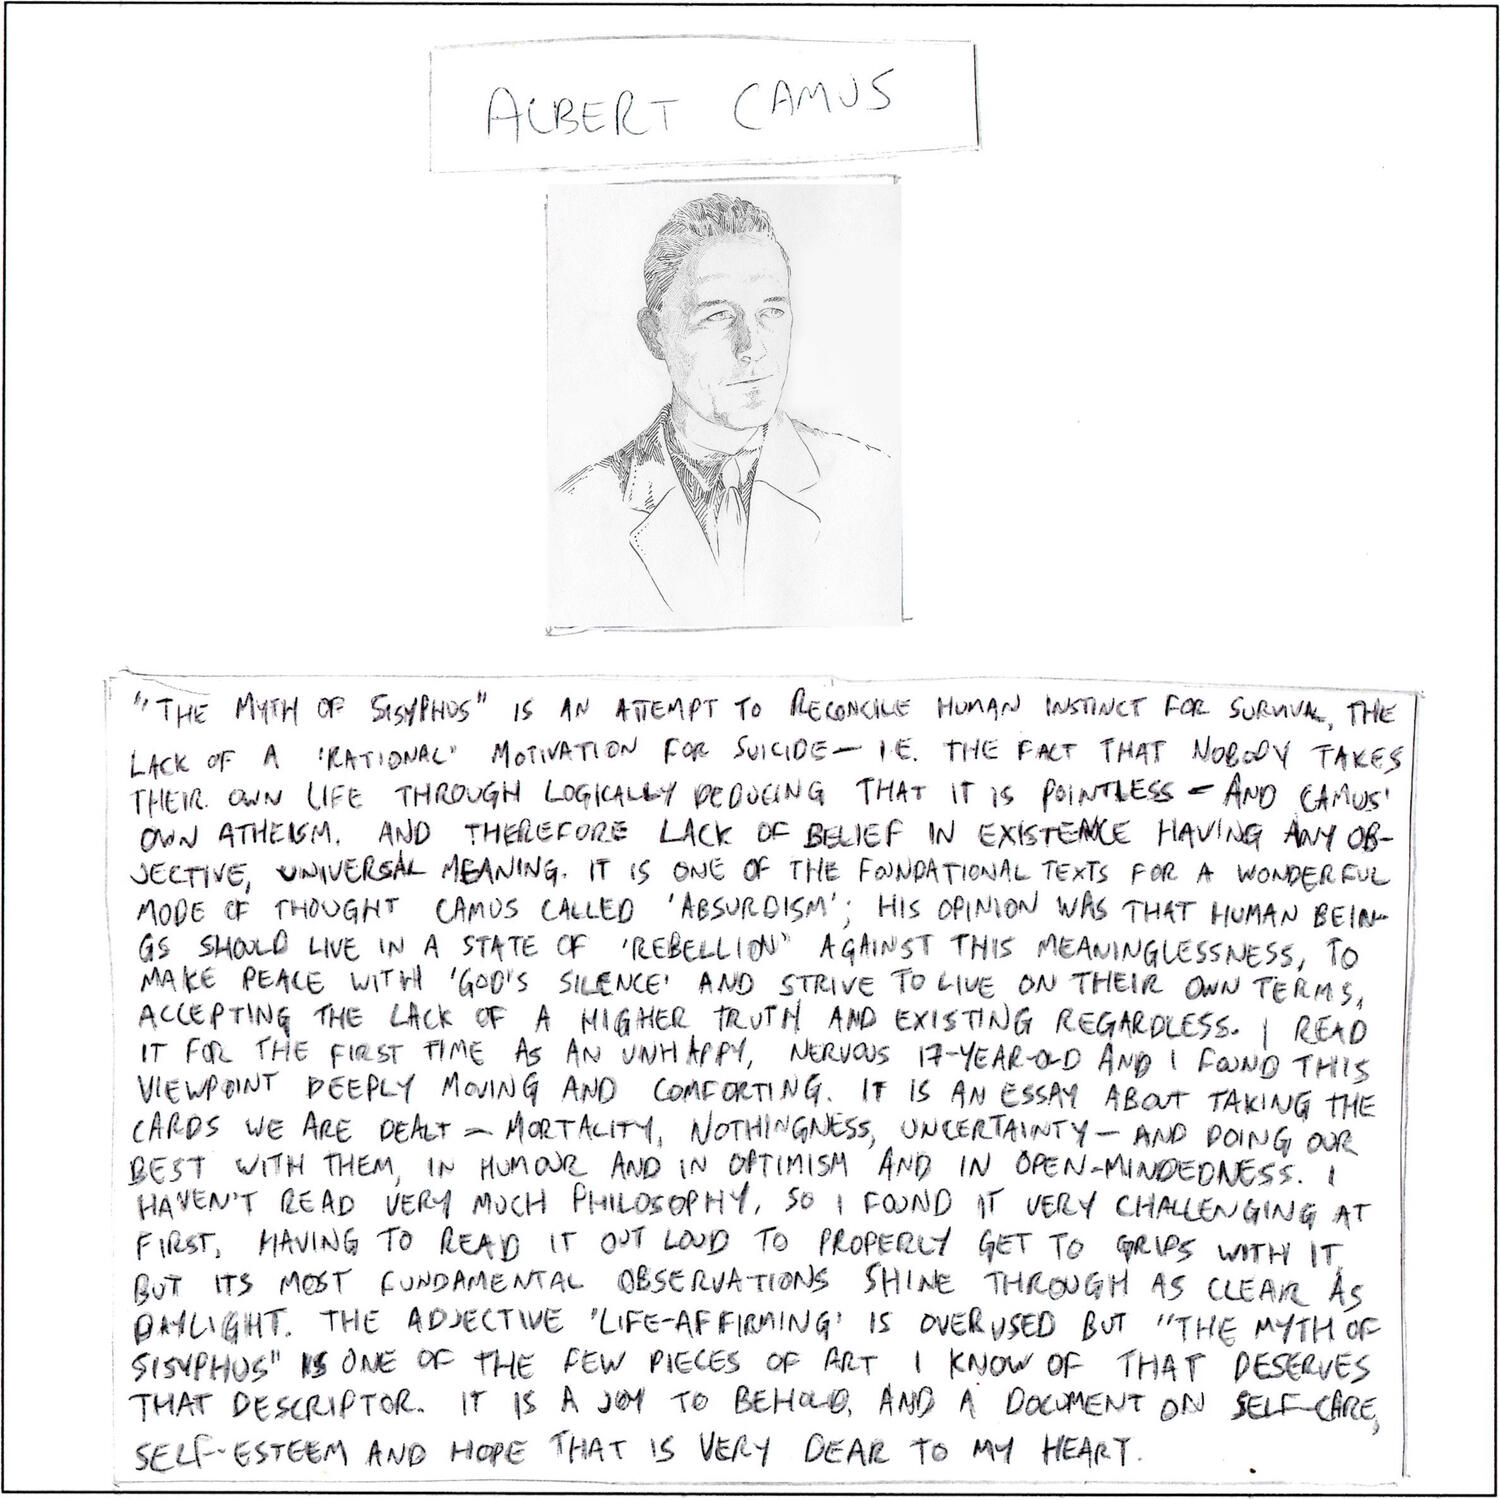 ALBERT CAMUS
"THE MYTH OF SISYPHUS" IS AN ATTEMPT TO RECONCILE HUMAN INSTINCT FOR SURVIVAL, THE
LACK OF A 'RATIONAL' MOTIVATION FOR SUICIDE — I.E. THE FACT THAT NOBODY TAKES
THEIR OWN LIFE THROUGH LOGICALLY DEDUCING THAT IT IS POINTLESS — AND CAMUS'
OWN ATHEISM. AND THEREFORE LACK OF BELIEF IN EXISTENCE HAVING ANY OB-
JECTIVE, UNIVERSAL MEANING. IT IS ONE OF THE FOUNDATIONAL TEXTS FOR A WONDERFUL
MODE OF THOUGHT CAMUS CALLED 'ABSURDISM'; HIS OPINION WAS THAT HUMAN BEIN-
GS SHOULD LIVE IN A STATE OF 'REBELLION' AGAINST THIS MEANINGLESSNESS, TO
MAKE PEACE WITH 'GOD'S SILENCE' AND STRIVE TO LIVE ON THEIR OWN TERMS,
ACCEPTING THE LACK OF A HIGHER TRUTH AND EXISTING REGARDLESS. I READ
IT FOR THE FIRST TIME AS AN UNHAPPY, NERVOUS 17-YEAR-OLD AND I FOUND THIS
VIEWPOINT DEEPLY MOVING AND COMFORTING. IT IS AN ESSAY ABOUT TAKING THE
CARDS WE ARE DEALT — MORTALITY, NOTHINGNESS, UNCERTAINTY — AND DOING OUR
BEST WITH THEM, IN HUMOUR AND IN OPTIMISM AND IN OPEN-MINDEDNESS. I
HAVEN'T READ VERY MUCH PHILOSOPHY, SO I FOUND IT VERY CHALLENGING AT
FIRST, HAVING TO READ IT OUT LOUD TO PROPERLY GET TO GRIPS WITH IT,
BUT ITS MOST FUNDAMENTAL OBSERVATIONS SHINE THROUGH AS CLEAR AS
DAYLIGHT. THE ADJECTIVE 'LIFE-AFFIRMING' IS OVERUSED BUT "THE MYTH OF
SISYPHUS" IS ONE OF THE FEW PIECES OF ART I KNOW OF THAT DESERVES
THAT DESCRIPTOR. IT IS A JOY TO BEHOLD, AND A DOCUMENT ON SELF-CARE,
SELF-ESTEEM AND HOPE THAT IS VERY DEAR TO MY HEART.